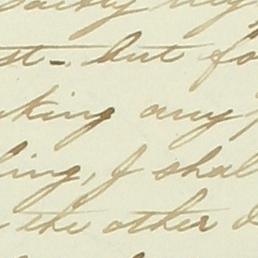 st - but fo
king any
ling, I shal
the other d